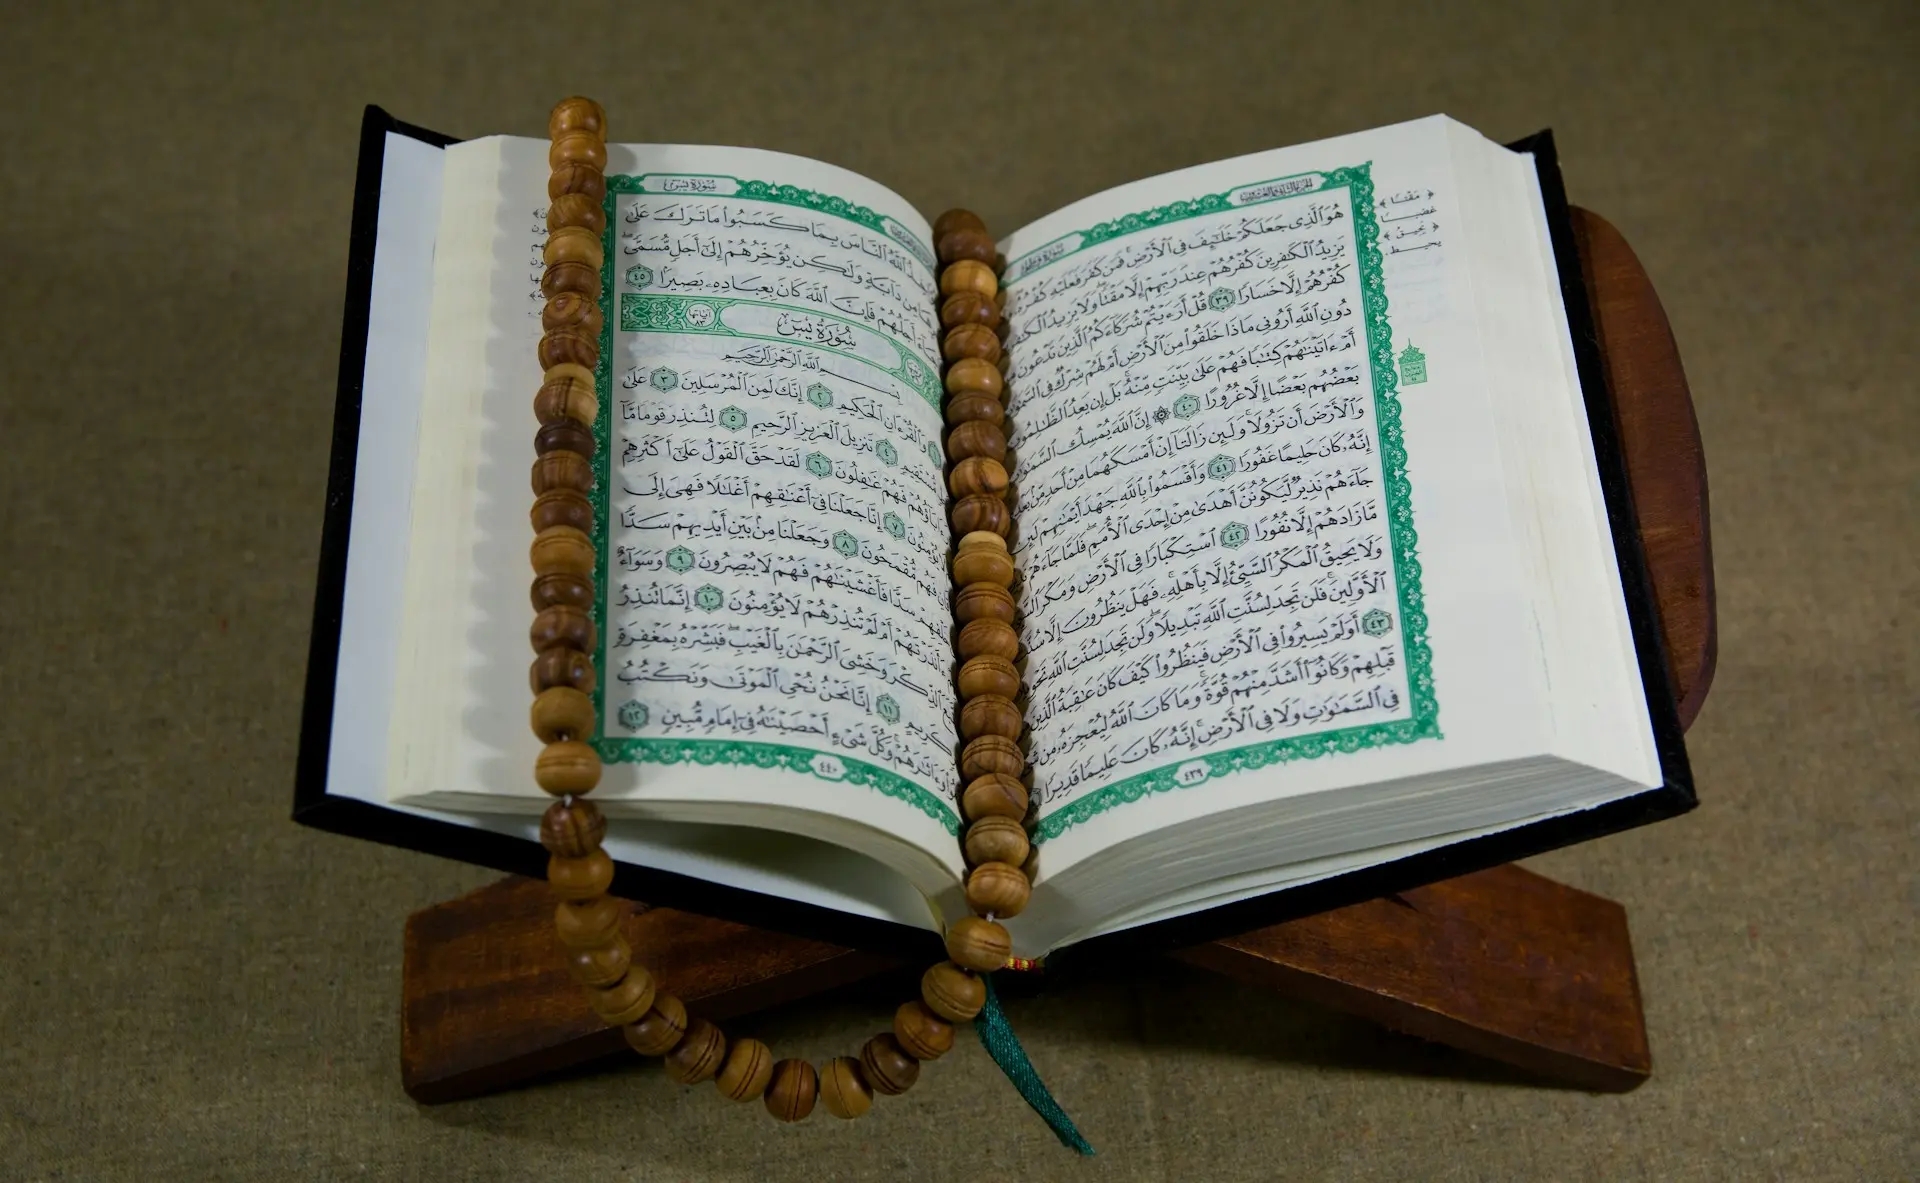 الجزء الثاني والعشرون
سُورَةُ فَاطِرٍ
هُوَ ٱلَّذِى جَعَلَكُمْ خَلَـٰٓئِفَ فِى ٱلْأَرْضِ فَمَن كَفَرَ فَعَلَيْهِ كُفْرُهُۥ
يَزِيدُ ٱلْكَـٰفِرِينَ كُفْرُهُمْ عِندَ رَبِّهِمْ إِلَّا مَقْتًا وَلَا يَزِيدُ
كُفْرُهُمْ إِلَّا خَسَارًا ٣٩ قُلْ أَرَءَيْتُمْ شُرَكَآءَكُمُ ٱلَّذِينَ تَدْعُونَ
دُونِ ٱللَّهِ أَرُونِى مَاذَا خَلَقُوا۟ مِنَ ٱلْأَرْضِ أَمْ لَهُمْ شِرْكٌ فِى
أَمْ ءَاتَيْنَـٰهُمْ كِتَـٰبًا فَهُمْ عَلَىٰ بَيِّنَتٍ مِّنْهُ بَلْ إِن يَعِدُ ٱلظَّـٰلِمُونَ
بَعْضُهُم بَعْضًا إِلَّا غُرُورًا ٤٠ ۞ إِنَّ ٱللَّهَ يُمْسِكُ
وَٱلْأَرْضَ أَن تَزُولَا وَلَئِن زَالَتَآ إِنْ أَمْسَكَهُمَا مِنْ أَحَدٍ مِّنۢ
إِنَّهُۥ كَانَ حَلِيمًا غَفُورًا ٤١ وَأَقْسَمُوا۟ بِٱللَّهِ جَهْدَ أَيْمَـٰنِهِمْ لَئِن
جَآءَهُمْ نَذِيرٌ لَّيَكُونُنَّ أَهْدَىٰ مِنْ إِحْدَى ٱلْأُمَمِ فَلَمَّا جَآءَهُمْ
مَّا زَادَهُمْ إِلَّا نُفُورًا ٤٢ ٱسْتِكْبَارًا فِى ٱلْأَرْضِ وَمَكْرَ
وَلَا يَحِيقُ ٱلْمَكْرُ ٱلسَّيِّئُ إِلَّا بِأَهْلِهِۦ فَهَلْ يَنظُرُونَ إِلَّا
ٱلْأَوَّلِينَ فَلَن تَجِدَ لِسُنَّتِ ٱللَّهِ تَبْدِيلًا وَلَن تَجِدَ لِسُنَّتِ ٱللَّهِ
٤٣ أَوَلَمْ يَسِيرُوا۟ فِى ٱلْأَرْضِ فَيَنظُرُوا۟ كَيْفَ كَانَ عَـٰقِبَةُ ٱلَّذِينَ
قَبْلِهِمْ وَكَانُوٓا۟ أَشَدَّ مِنْهُمْ قُوَّةً وَمَا كَانَ ٱللَّهُ لِيُعْجِزَهُۥ مِن
فِى ٱلسَّمَـٰوَٰتِ وَلَا فِى ٱلْأَرْضِ إِنَّهُۥ كَانَ عَلِيمًا قَدِيرًا
٤٣٩
﴿ مَقْتًا ﴾
غضبا
﴿ يَحِيقُ ﴾
يحيط
سُورَةُ يسٓ
ٱللَّهُ ٱلنَّاسَ بِمَا كَسَبُوا۟ مَا تَرَكَ عَلَىٰ
مِن دَآبَّةٍ وَلَـٰكِن يُؤَخِّرُهُمْ إِلَىٰٓ أَجَلٍ مُّسَمًّى
أَجَلُهُمْ فَإِنَّ ٱللَّهَ كَانَ بِعِبَادِهِۦ بَصِيرًۢا ٤٥
سُورَةُ يسٓ
آياتها ٨٣
بِسْمِ ٱللَّهِ ٱلرَّحْمَـٰنِ ٱلرَّحِيمِ
وَٱلْقُرْءَانِ ٱلْحَكِيمِ ٢ إِنَّكَ لَمِنَ ٱلْمُرْسَلِينَ ٣ عَلَىٰ
مُّسْتَقِيمٍ ٤ تَنزِيلَ ٱلْعَزِيزِ ٱلرَّحِيمِ ٥ لِتُنذِرَ قَوْمًا مَّآ
ءَابَآؤُهُمْ فَهُمْ غَـٰفِلُونَ ٦ لَقَدْ حَقَّ ٱلْقَوْلُ عَلَىٰٓ أَكْثَرِهِمْ
يُؤْمِنُونَ ٧ إِنَّا جَعَلْنَا فِىٓ أَعْنَـٰقِهِمْ أَغْلَـٰلًا فَهِىَ إِلَى
فَهُم مُّقْمَحُونَ ٨ وَجَعَلْنَا مِنۢ بَيْنِ أَيْدِيهِمْ سَدًّا
سَدًّا فَأَغْشَيْنَـٰهُمْ فَهُمْ لَا يُبْصِرُونَ ٩ وَسَوَآءٌ
ءَأَنذَرْتَهُمْ أَمْ لَمْ تُنذِرْهُمْ لَا يُؤْمِنُونَ ١٠ إِنَّمَا تُنذِرُ
ٱلذِّكْرَ وَخَشِىَ ٱلرَّحْمَـٰنَ بِٱلْغَيْبِ فَبَشِّرْهُ بِمَغْفِرَةٍ
كَرِيمٍ ١١ إِنَّا نَحْنُ نُحْىِ ٱلْمَوْتَىٰ وَنَكْتُبُ
وَءَاثَـٰرَهُمْ وَكُلَّ شَىْءٍ أَحْصَيْنَـٰهُ فِىٓ إِمَامٍ مُّبِينٍ ١٢
٤٤٠